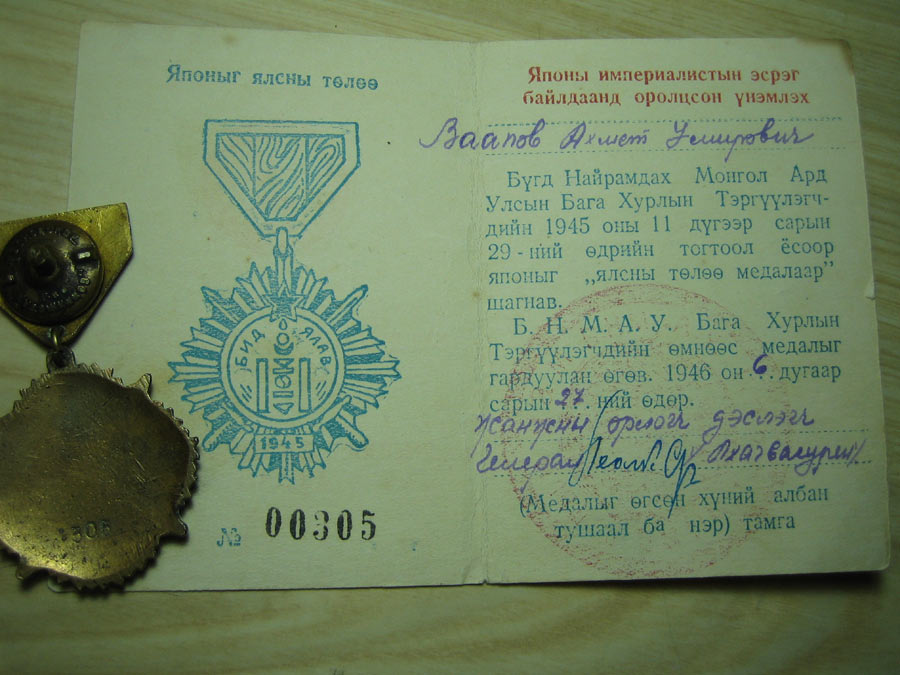 Японыг ялсны төлөө
БИД ЯЛАВ
1945
№ 00305
Японы империалистын эсрэг
байлдаанд оролцсон үнэмлэх
Ваапов Ахмет Умирович
Бүгд Найрамдах Монгол Ард
Улсын Бага Хурлын Тэргүүлэгч-
дийн 1945 оны 11 дүгээр сарын
29-ний өдрийн тогтоол ёсоор
японыг „ялсны төлөө медалаар"
шагнав.
Б. Н. М. А. У. Бага Хурлын
Тэргүүлэгчдийн өмнөөс медалыг
гардуулан өгөв. 1946 он 6 дугаар
сарын 27 ний өдөр.
Жанжны орлогч дэслэгч
Генерал
(Медалыг өгсөн хүний албан
тушаал ба нэр) тамга